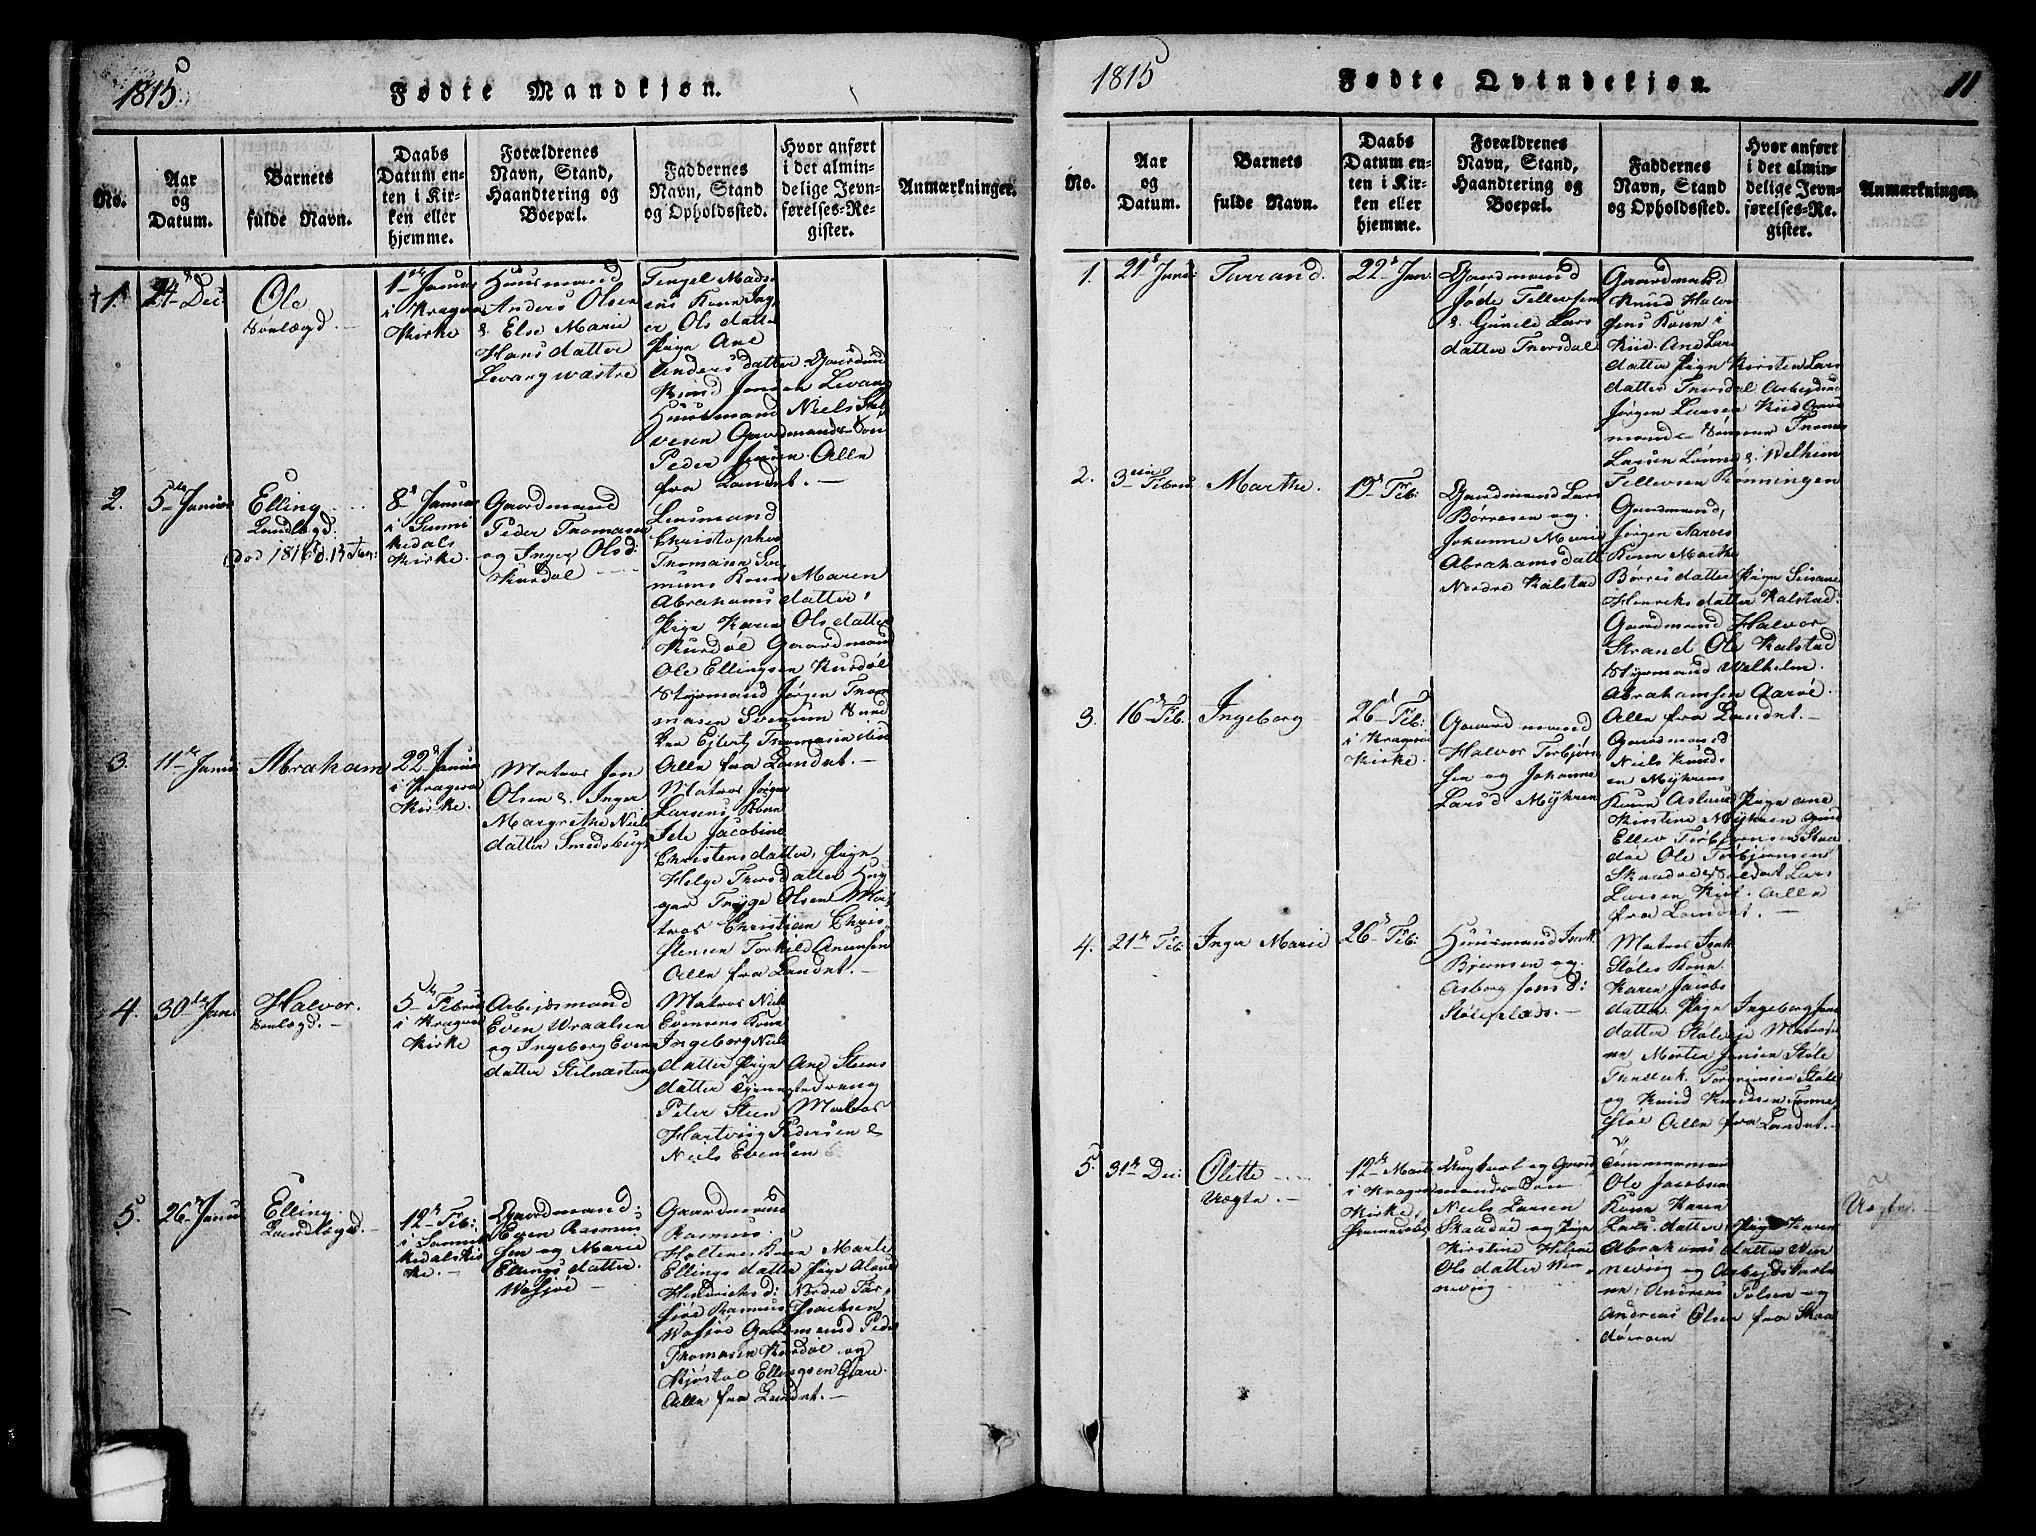 1815
Fødte Mandkjøn.
No.
Aar
og
Datum.
Barnets
fulde Navn.
Daabs
Datum en-
ten i Kir-
ken eller
hjemme.
Forældrenes
Navn, Stand,
Haandtering og
Boepæl.
Faddernes
Navn, Stand
og Opholdssted.
Hvor anført
i det almin-
delige Jevn-
førelses-Re-
gister.
Anmærkninger.
†1.
24 Dec
Ole
1ste Januar
i Kragerø
Kirke
Huusmand
Anders Olsen
& Else Marie
Hansdatter
Levangwæstre
Tengel Mads
ens Kone Ing
er Olsdatter
Pige Ane
Andersdatter Gaardmd
Knud Jensen Levang
Huusmand Niels
Gaardmands Søn
Peder Jensen Alle
fra Landet.
2.
5te Januar
Elling
8de Januar
i Sanni
kedals
Kirke
Gaardmand
Peder Thomasen
og Inger Olsd:
Kurdøl
Leusmand
Christopher
Thomasen
Kone Maren
Abrahamsdatter,
Pige Karen Olsdatter
Kurdøl Gaardmand
Ole Ellingsen Kurdøl
Styrmand Jørgen Thom
masen
Ejlert Thomasen
Alle fra Landet.
3.
11te Janua
Abraham
22de Janua
i Kragerø
Kirke.
Matros Jon
Olsen & Inger
Margrethe Niels
datter Smedsbugt
Matros Jørgn
Larsens Kone
Jacobine
Christensdatter, Pige
Helge Thorsdatter
Trÿge Olsen Ma-
tros Christian Chris
tensen Torkild Anunsen
Alle fra Landet.
4.
30te Jan:
Halvor.
5te Februar
i Kragerø
Kirke
Arbejdsmand
Even Wraalsen
og Ingeborg Even
datter Stilnæstang
Matros Niels
Evensens Kone
Ingeborg Niels
datter Pige Ane Steens
datter Tjenestedreng
Peter Steen Matros
Hartvig Pedersen &
Niels Evensen
5.
26te Janua
Elling.
12te Feb:
i Sanni
kedals Kir
ke.
Gaardmand:
Even Rasmus
sen og Marie
Ellingsdatter.
Wasjøe
Gaardmand
Rasmus
Holtens Kone Marte
Ellingsdatter Pige
Hendricksd: Nordre Far
sjøe Rasmus Isachsen
Wasjøe Gaardmand Peder
Thomasen Kurdøl og
Kjøstol Ellingsen
Alle fra Landet.
1815
Fødte Qvindekjøn.
11
No.
Aar
og
Datum.
Barnets
fulde Navn.
Daabs
Datum en-
ten i Kir-
ken eller
hjemme.
Forældrenes
Navn, Stand,
Haandtering og
Boepæl.
Faddernes
Navn, Stand
og Opholdssted.
Hvor anført
i det almin-
delige Jevn-
førelses-Re-
gister.
Anmærkninger.
1.
21de Janu:
Turrand.
22de Jan:
Gaardmand
Jøde Tellevsen
& Gunild Lars
datter Thorsdal
Gaardmand
Knud Halvor
sens Kone i
Kiid. Ane Lars
datter Pige Kirsten Lars
datter Thorsdal Arbejdsmd
Jørgen Larsen Kiid Gaard
mands Sønner Thomas
Larsen Lønne & Welhelm
Tellevsen Rønningen
2.
3die Febru
Marthe.
19de Feb:
Gaardmand Lars
Børresen og
Johanne Marie
Abrahamsdatt
Nerdre Kalstad
Gaardmand,
Jørgen Aaroes
Kone Marthe
Børresdatter Pige Susane
Henriksdatter Kalstad.
Gaardmand Halvor
Strand Ole Kalstad
Styrmand Welhelm.
Abrahamsen Aarøe.
Alle fra Landet.
3.
16de Feb.
Ingeborg
26de Feb:
i Kragerø
Kirke.
Gaardmand
Halvor Torbjørn
sen og Johanne
Larsd Mÿhren
Gaardmand
Niels Knuds
en Mÿhrens
Kone Aslaug Pige Ane
Kirstine Mÿhren
Ellev Torbjørnsen Skaa
døe Ole Torbjørnsen
Skaadøe Soldat Lars
Larsen Alle
fra Landet.
4.
21de Feb:
Inger Marie
26de Feb:
Huusmand Isak
Bjørnsen og
Asborg Jensd:
Støleplads.
Matros Isak
Støles Kone.
Karen Jacobs
datter Pige Ingeborg Jens
datter Støle Matros
Morten Jensen Støle
Torgrimsen Støle
og Knud Knudsen
Alle fra Landet.
5.
31te Dec:
Olette
Uægte.
12te Marts
i Kragerø
Kirke,
Ungkarl og Gaard
mands Søn
Niels Larsen
Skaadøe og Pige
Kirstine Helene
Olsdatter Wen
neviig
Tømmerman
Ole Jacobsen
Kone Karen
Larsdatter, Pige Karen
Abrahamsdatter Wen
neviig og Arbejdskarle
ne: Andreas Tolsen og
Andreas Olsen fra Skaa
døeroen
Uægte.